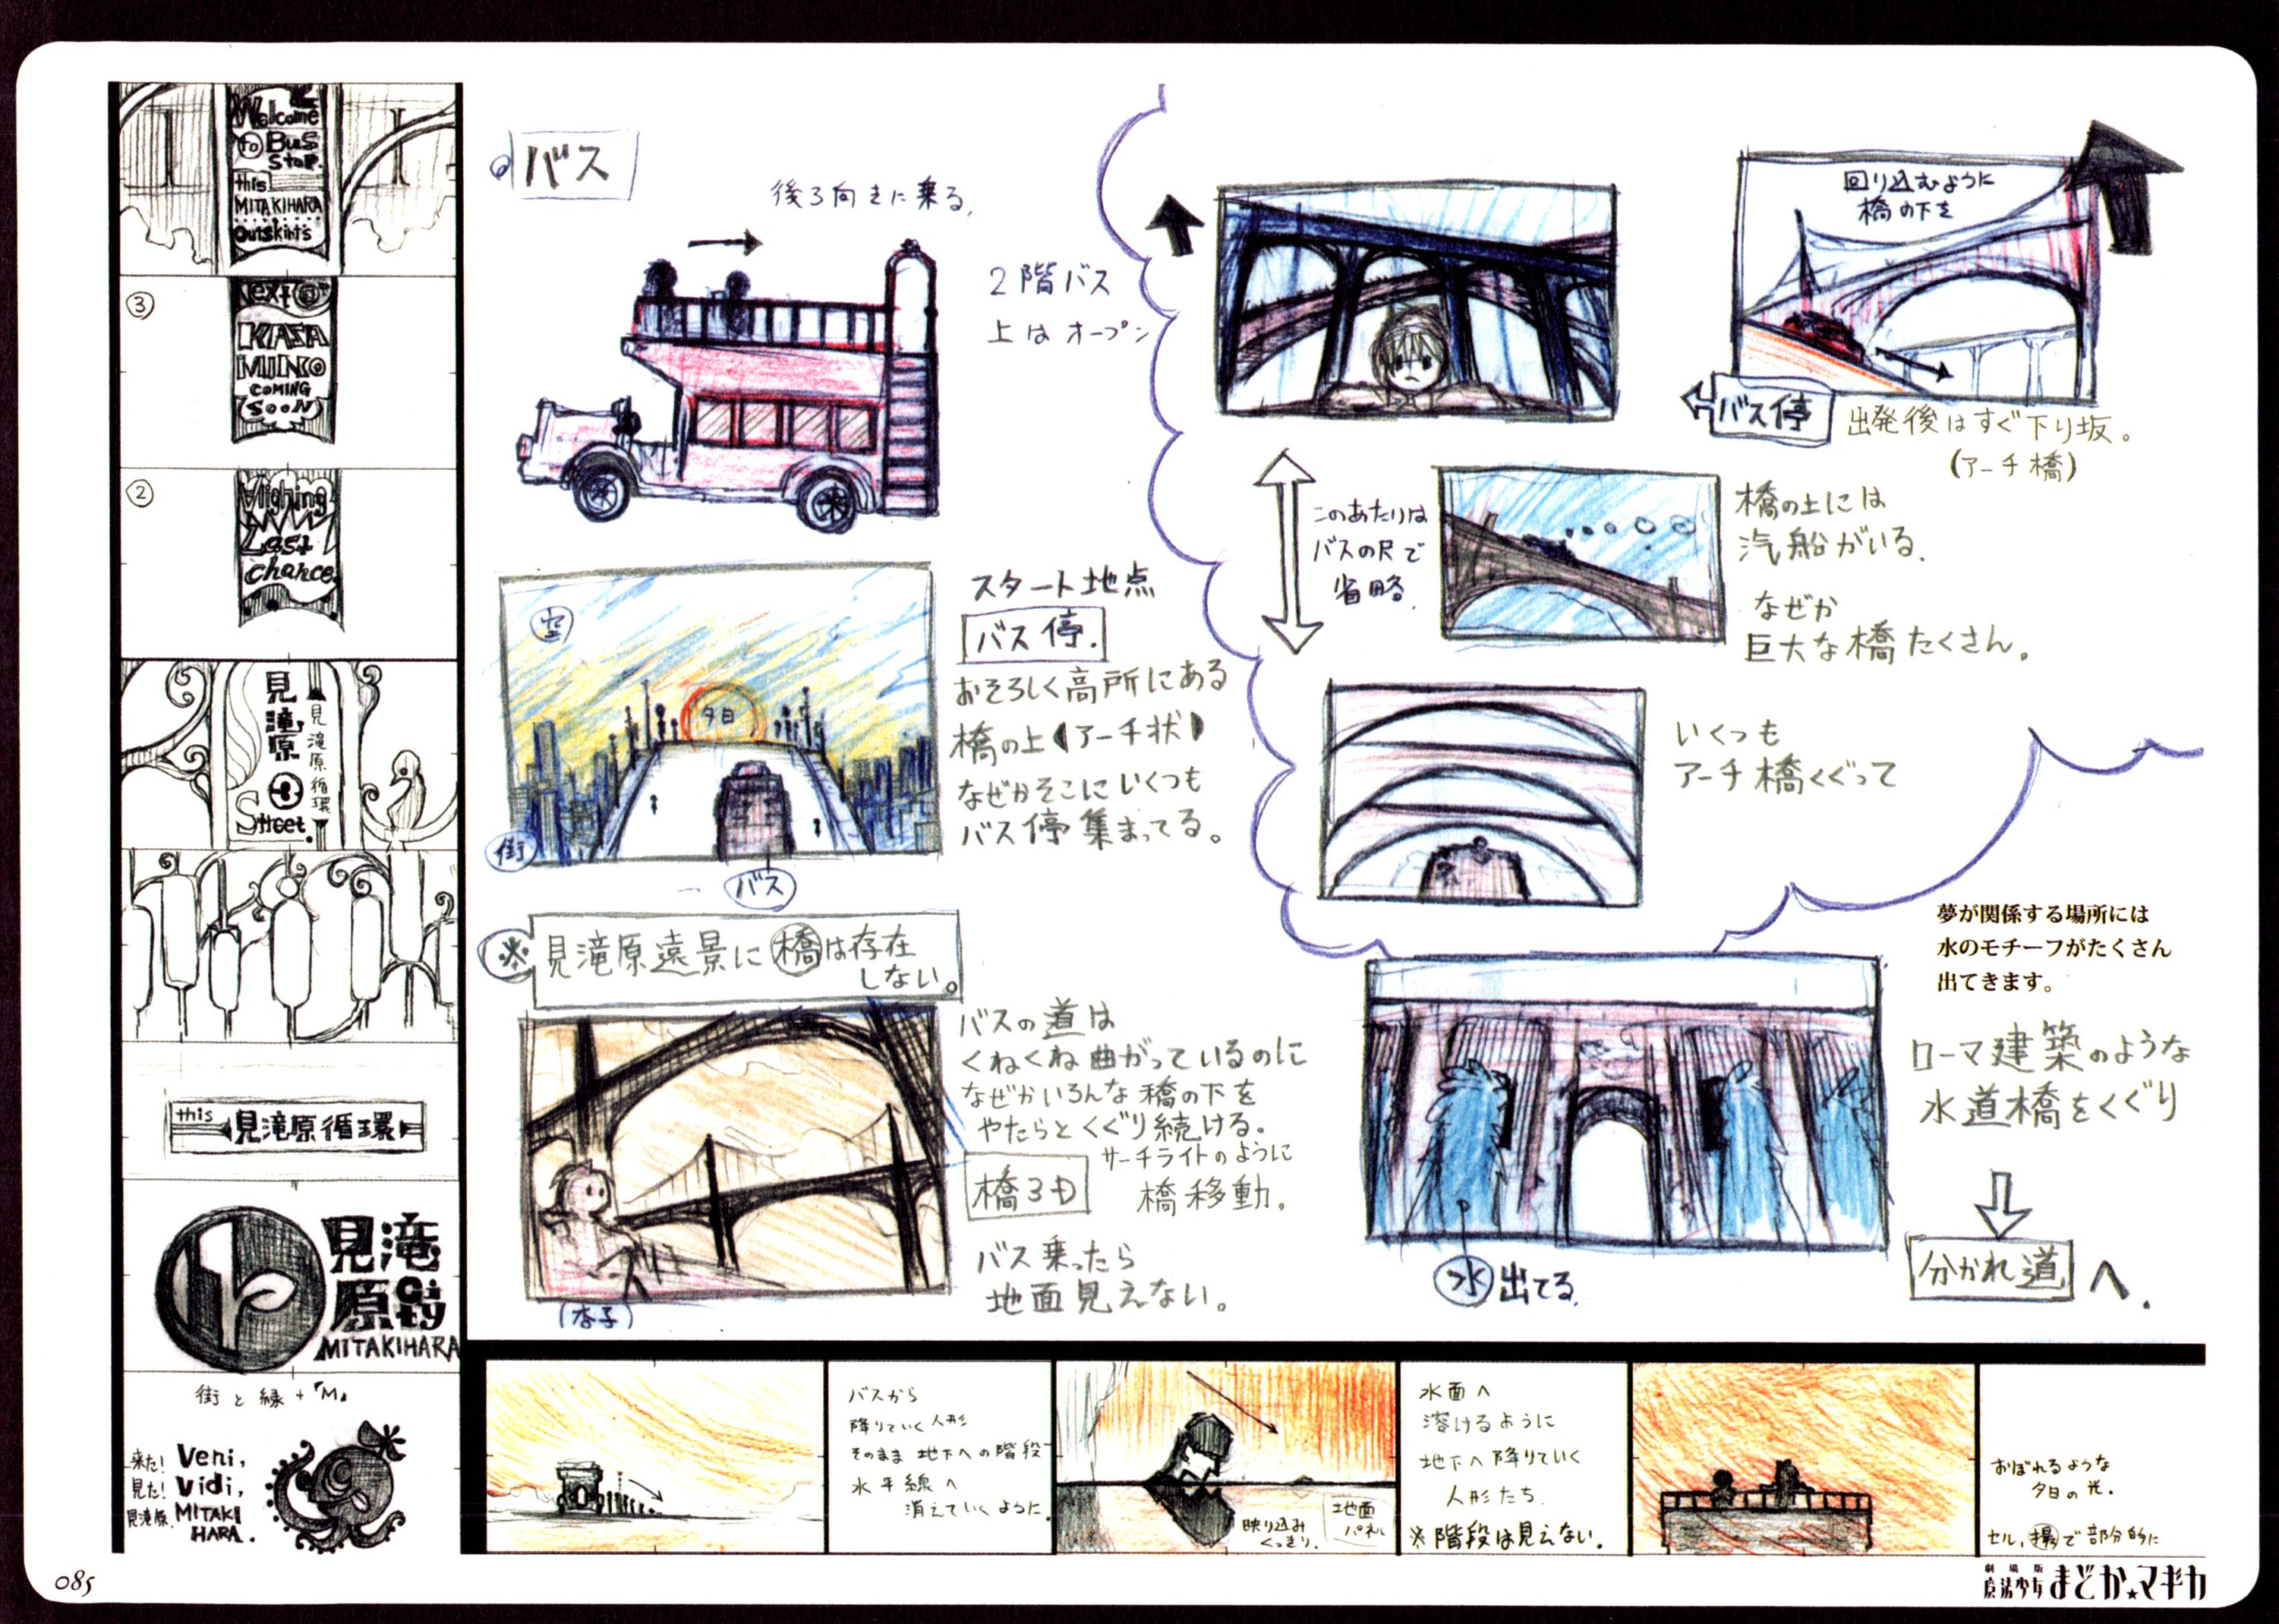 Welcome
to Bus
Stop.
this
MITAKIHARA
Outskirts
③
Next
KASA
MINO
COMING
SOON
②
Last
chance
見滝原
見滝原循環
Street.
this
見滝原循環
見滝原
City
MITAKIHARA
街と緑+「M」
来た!
見た!
見滝原.
Veni,
Vidi,
MITAKI
HARA.
バス
後ろ向きに乗る.
2階バス
上はオープン
空
夕日
街
バス
スタート地点
バス停.
おそろしく高所にある
橋の上(アーチ状)
なぜかそこにいくつも
バス停集まってる。
※
見滝原遠景に橋は存在
しない。
バスの道は
くねくね曲がっているのに
なぜかいろんな橋の下を
やたらとくぐり続ける。
サーチライトのように
橋移動。
橋3D
バス乗ったら
地面見えない。
(杏子)
回り込むように
橋の下を
バス停
出発後はすぐ下り坂。
(アーチ橋)
このあたりは
バスの尺で
省略.
橋の上には
汽船がいる.
なぜか
巨大な橋たくさん。
いくつも
アーチ橋くぐって
夢が関係する場所には
水のモチーフがたくさん
出てきます。
ローマ建築のような
水道橋をくぐり
分かれ道へ.
水出てる.
バスから
降りていく人形
そのまま地下への階段
水平線へ
消えていくように.
映り込み
くっきり.
地面
パネル
水面へ
溶けるように
地下へ降りていく
人形たち.
※階段は見えない。
おぼれるような
夕日の光.
セル,撮で部分的に
085
劇場版
魔法少女まどか★マギカ